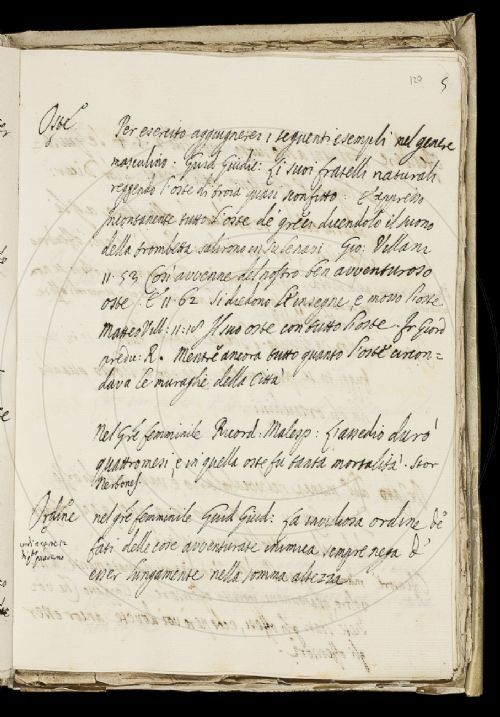 120 5
Oste
Per esercito aggiugneres i seguenti esempli nel genere
masculino: Guid Giudic: Li suoi fratelli naturali
reggendo l'oste di troia quasi sconfitto. E appresso
Incontanente tutto l'oste de greci udendo il suono
della trombetta salirono in su Gio: Villani
11.53 Così avvenne del nostro ben avventuroso
oste. E 11.62 si diedono le insegne, e movo l'oste
Matteo Vill: 11.18 Il suo oste con tutto l'oste. Fr Giord
pred: R. Mentre ancora tutto quanto l'oste circon=
dava le muraglie della Città
Nel gre femminile Ricord. Malesp: L'assedio durò
quattro mesi, e in quella oste fu tanta mortalità. Stor
Nerbones.
Ordine
nel gre femminile Guid Giud: La invidiosa ordine de
fati delle cose avventurate inimica sempre nega d'
esser lungamente nella somma altezza